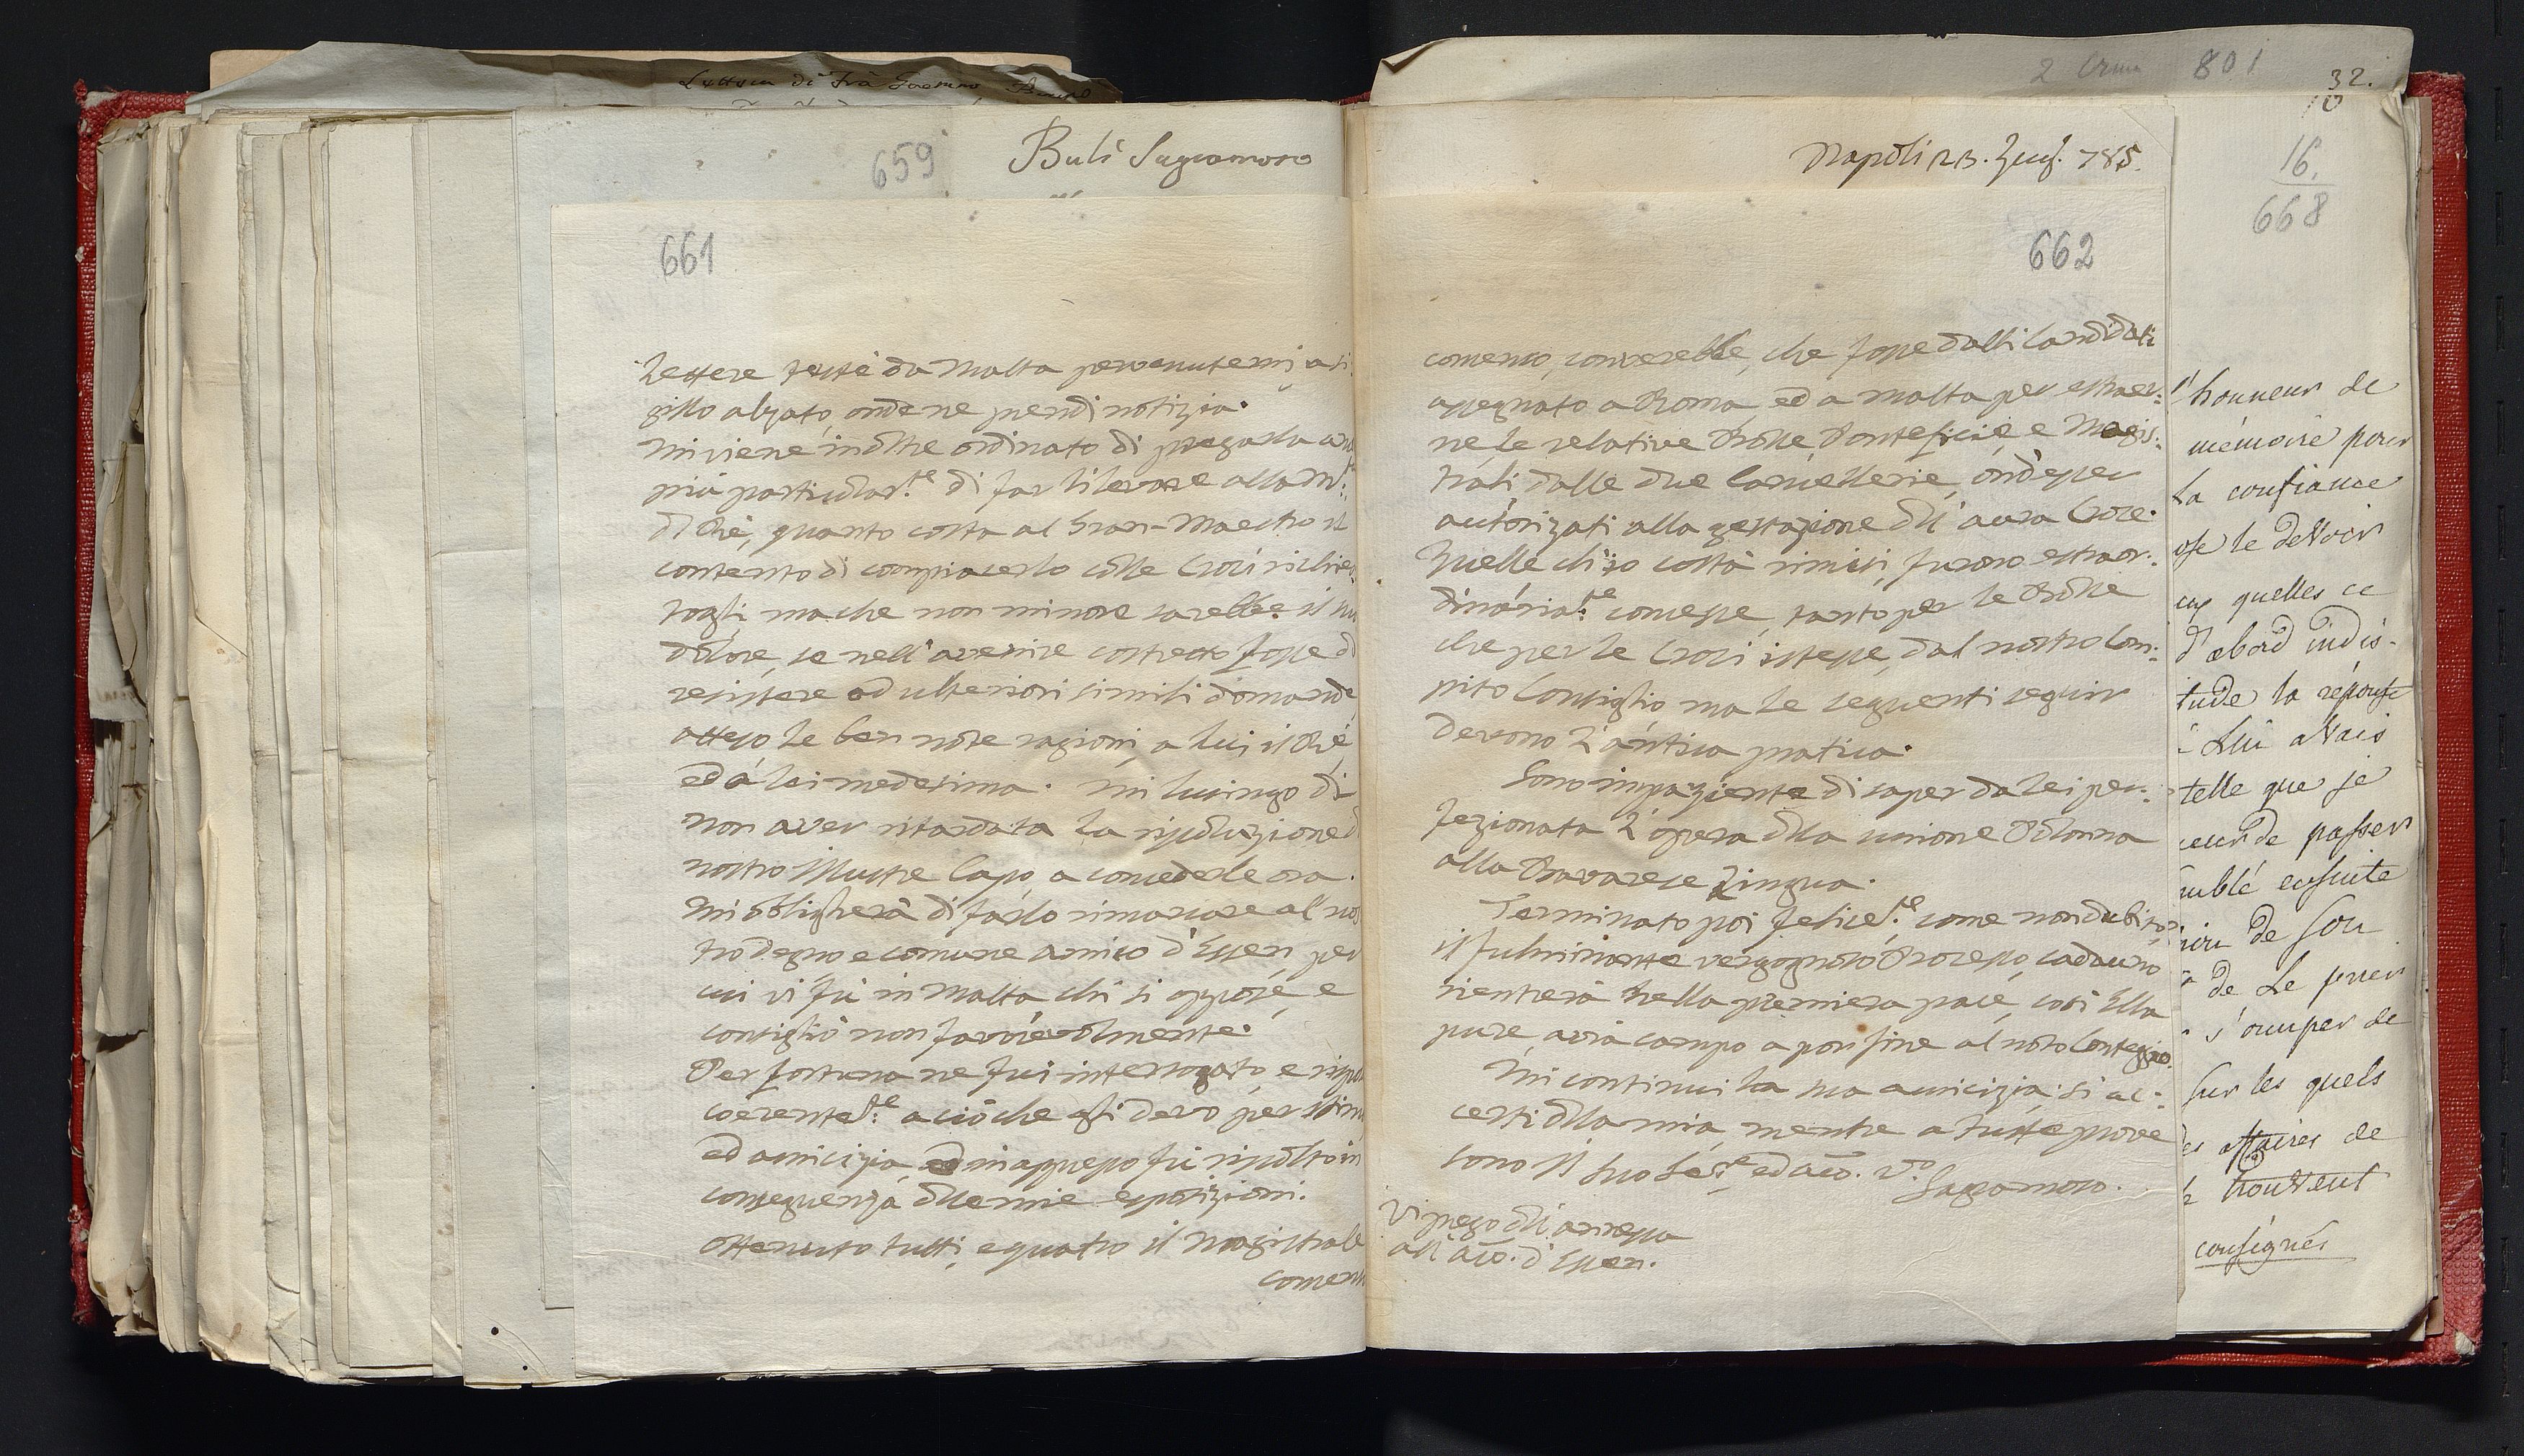 Lettera di Frà
659
Balí Sagramoso
661
Lettere tutte da Malta pervenutemi a si:
gillo alzato, onde ne prendi notizia.
Mi viene inoltre ordinato di pregarla
più particolar.te di far rilevare alla M.
di Rè, quanto costa al Gran-Maestro il
contento di compiacerlo colle Croci
ma che non minore sarebbe il
dolore, se nell'avenire costretto fosse di
resistere ad ulteriori simili domande
atteso le ben note ragioni, a lui il Rè,
ed à lei medesima. Mi lusingo di
non aver ritardata la risoluzione
nostro Illustre Capo, a concederle ora.
Mi obligherà di farlo rimarcare al nos
tro degno e comune amico d'Essen per
cui vi fù in Malta chi si oppose, e
consigliò non favorevolmente.
Per fortuna ne fui interrogato, e
coerente.te a ciò che gli devo per stima
ed amicizia, ed in appresso fù risolto in
conseguenza dlle mie esposizioni.
Ottenuto tutti, e quatro il magistrale
2 801
32.
10
Napoli 23. 785.
16.
668
662
converebbe, che fosse dalli Candidati
assegnato a Roma, ed a Malta per estraer:
ne le relative Bolle, Pontificie, e Magis:
trali dalle due Cancellerie, onde
autorizati alla gestazione dll' aurea Croce.
Quelle ch'io costà rimisi, furono estraor:
dinaria.te concesse, tanto per le Bolle
che per le Croci istesse, dal nostro Com:
pito Consiglio, ma le seguenti seguir
devono l'antica pratica.
Sono impaziente di saper da lei per:
fezionata l'opera dlla unione Polonna
alla Bavarese Lingua.
Terminato poi felice.te, come non dubito,
il fulminante vergognoso Processo, cadauno
rientrerà nella primiera pace, così Ella
pure, avrà campo a por fine al noto Conteggio.
Mi continui la sua amicizia: si ac:
certi dlla mia, mentre a tutte prove
sono Il Suo ed V.o
Sagramoso.
Vi prego dll' annessa
all' d'Essen.
l'honneur de
mémoire pour
la confiance
ose le devoir
quelles ce
d'abord indis-
tude la réponse
Lui avais
telle que je
de passer
ensuite
de son
de Le prier
s'ocuper de
sur les quels
affaires de
trouvent
consignés